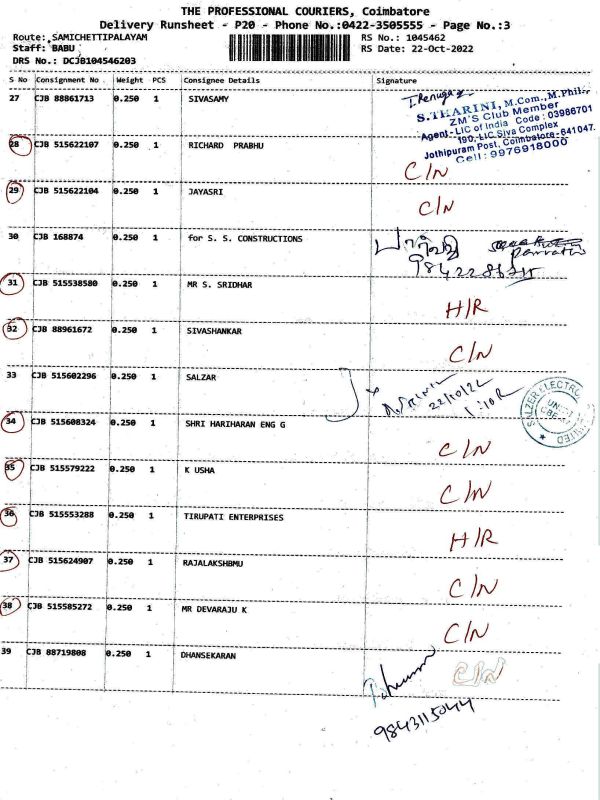 THE PROFESSIONAL COURIERS, Coimbatore
Delivery Runsheet - P20 - Phone No.:0422-3505555 - Page No.:3
Route: SAMICHETTIPALAYAM RS No.: 1045462
Staff: BABU RS Date: 22-Oct-2022
DRS No.: DCJB104546203
S No Consignment No Weight PCS Consignee Details Signature
27 CJB 88861713 0.250 1 SIVASAMY
S.THARINI, M.Com., M.Phil.,
ZM'S Club Member
Agent - LIC of India Code : 03986701
190, LIC Siva Complex
Jothipuram Post, Coimbatore-641047.
Cell : 9976918000
28 CJB 515622107 0.250 1 RICHARD PRABHU C/N
29 CJB 515622104 0.250 1 JAYASRI C/N
30 CJB 168874 0.250 1 for S. S. CONSTRUCTIONS
31 CJB 515538580 0.250 1 MR S. SRIDHAR H/R
32 CJB 88961672 0.250 1 SIVASHANKAR C/N
33 CJB 515602296 0.250 1 SALZAR
22/10/22
SALZER ELECTRONICS LIMITED
34 CJB 515608324 0.250 1 SHRI HARIHARAN ENG G C/N
35 CJB 515579222 0.250 1 K USHA C/N
36 CJB 515553288 0.250 1 TIRUPATI ENTERPRISES H/R
37 CJB 515624907 0.250 1 RAJALAKSHBMU C/N
38 CJB 515585272 0.250 1 MR DEVARAJU K C/N
39 CJB 88719808 0.250 1 DHANSEKARAN C/N
9843115044